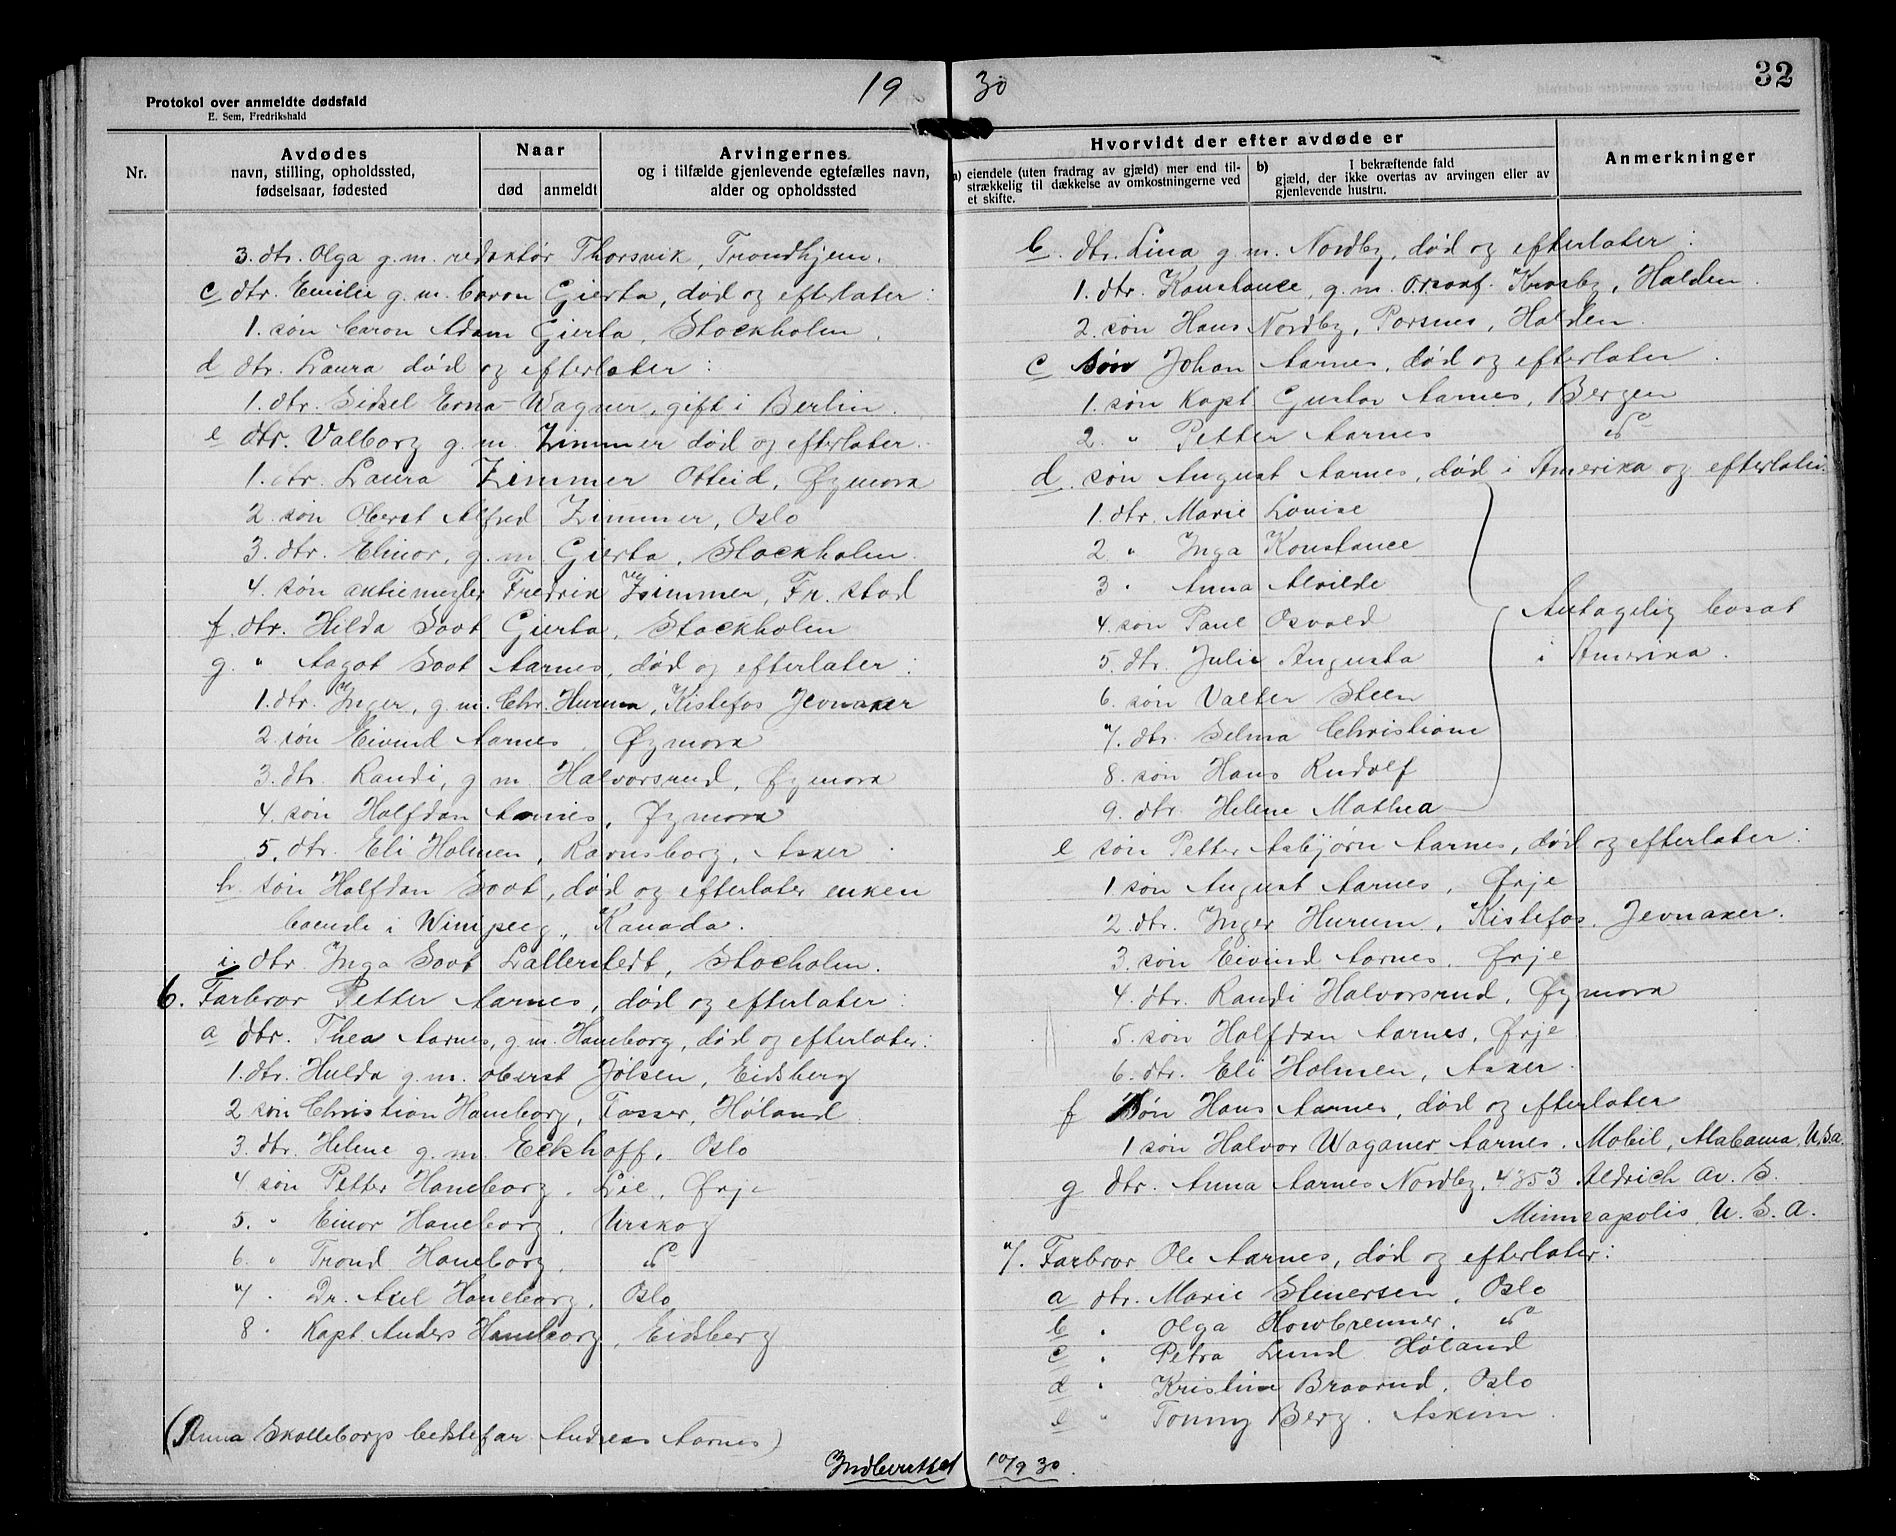 19 30
32
Protokol over anmeldte dødsfald
E. Sem, Fredrikshald
Nr.
Avdødes
navn, stilling, opholdssted,
fødselsaar, fødested
Naar
død
anmeldt
Arvingernes
og i tilfælde gjenlevende egtefælles navn,
alder og opholdssted
Hvorvidt der efter avdøde er
a) eiendele (uten fradrag av gjæld) mer end til-
strækkelig til dækkelse av omkostningerne ved
et skifte.
b) I bekræftende fald
gjæld, der ikke overtas av arvingen eller av
gjenlevende hustru.
Anmerkninger
3. dtr. Olga g.m. redaktør Thorsvik, Trondhjem.
c dtr. Emilie g.m. baron Gierta, død og efterlater:
1. søn baron Adam Gierta, Stockholm.
d dtr. Laura død og efterlater:
1. dtr. Sidsel Erna Wagner, gift i Berlin.
e dtr. Valborg g.m. Zimmer død og efterlater:
1. dtr. Laura Zimmer Otteid, Øymork
2. søn Oberst Alfred Zimmer, Oslo
3. dtr. Elinor, g.m. Gierta, Stockholm.
4. søn aktiemegler Fredrik Zimmer, Fr. stad
f. dtr. Hilda Soot Gierta, Stockholm
g. " Aagot Soot Aarnes, død og efterlater:
1. dtr. Inger, g.m. Chr. Hurum, Kistefos Jevnaker
2. søn Eivind Aarnes, Øymork
3. dtr. Randi, g.m. Halvorsrud, Øymork
4. søn Halfdan Aarnes, Øymork
5. dtr. Eli Holmen, Ravnsborg, Asker
h. søn Halfdan Soot, død og efterlater enken
boende i Winipeg, Kanada.
i. dtr. Inga Soot Lallerstedt, Stocholm.
6. Farbror Petter Aarnes, død og efterlater:
a dtr. Thea Aarnes, g.m. Haneborg, død og efterlater:
1. dtr. Hulda g.m. oberst Jølsen, Eidsberg
2 søn Christian Haneborg, Fosser, Høland
3. dtr. Helene g.m. Eckhoff, Oslo
4. søn Petter Haneborg, Lie, Ørje
5. " Einar Haneborg, Urskog
6. " Trond Haneborg, do
7 " Dr. Axel Haneborg, Oslo
8 " Kapt Anders Haneborg, Eidsberg
(Anna Skolleborgs bedstefar Andreas Aarnes)
b. dtr. Lina g.m. Nordby, død og efterlater:
1. dtr. Konstance, g.m. Krosby, Halden.
2. søn Hans Nordby, Porsnes, Halden.
c søn Johan Aarnes, død og efterlater:
1. søn Kapt Gustav Aarnes, Bergen
2. " Petter Aarnes do
d. søn August Aarnes, død i Amerika og efterlater:
1. dtr. Marie Louise
2 " Inga Konstance
3 " Anna Alvilde
4. søn Paul Osvald
5. dtr. Julie Augusta
6. søn Valter Steen
7. dtr. Selma Christiane
8. søn Hans Rudolf
9. dtr. Helene Mathea
Antagelig bosat
i Amerika.
e søn Petter Asbjørn Aarnes, død og efterlater:
1 søn August Aarnes, Ørje
2. dtr. Inger Hurum, Kistefos, Jevnaker.
3. søn Eivind Aarnes, Ørje
4. dtr. Randi Halvorsrud, Øymork
5. søn Halfdan Aarnes, Ørje
6. dtr. Eli Holmen, Asker.
f søn Hans Aarnes, død og efterlater
1 søn Halvor Waganer Aarnes, Mobil, Alabama, U.S.a.
g dtr. Anna Aarnes Nordby, 4353 Aldrich Av. S.
Minneapolis, U.S.A.
7. Farbror Ole Aarnes, død og efterlater:
a dtr. Marie Stenersen, Oslo
b " Olga do
c " Petra Lund Høland
d " Kristine Braarud, Oslo
e " Tonny Berg. Askim.
Indberettet 10/9 30.